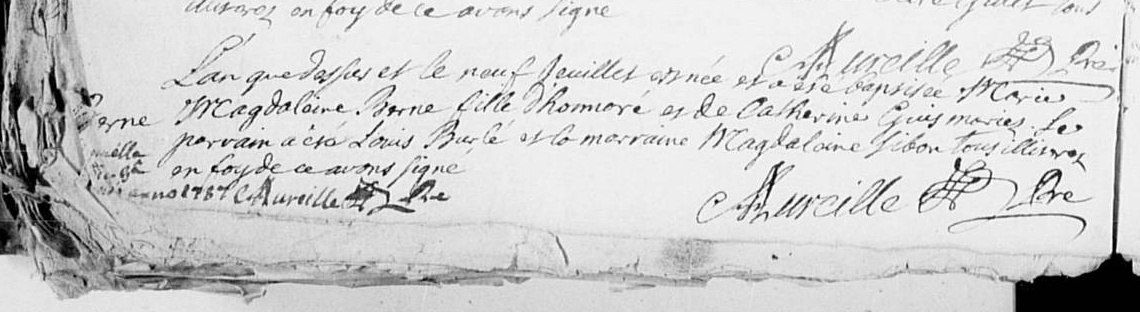 illiterez en foy de ce avons signé
Aureille Pre
L'an que dessus et le neuf Jeuillet est née et a été baptisée Marie
Magdalaine Berne fille d'honnoré et de Catherine Guis mariés. Le
parrain a été Louis Burlé et la marraine Magdalaine Sibon tous illiterez
en foy de ce avons signé
Aureille Pre
Berne
anno 1787 Aureille Pre